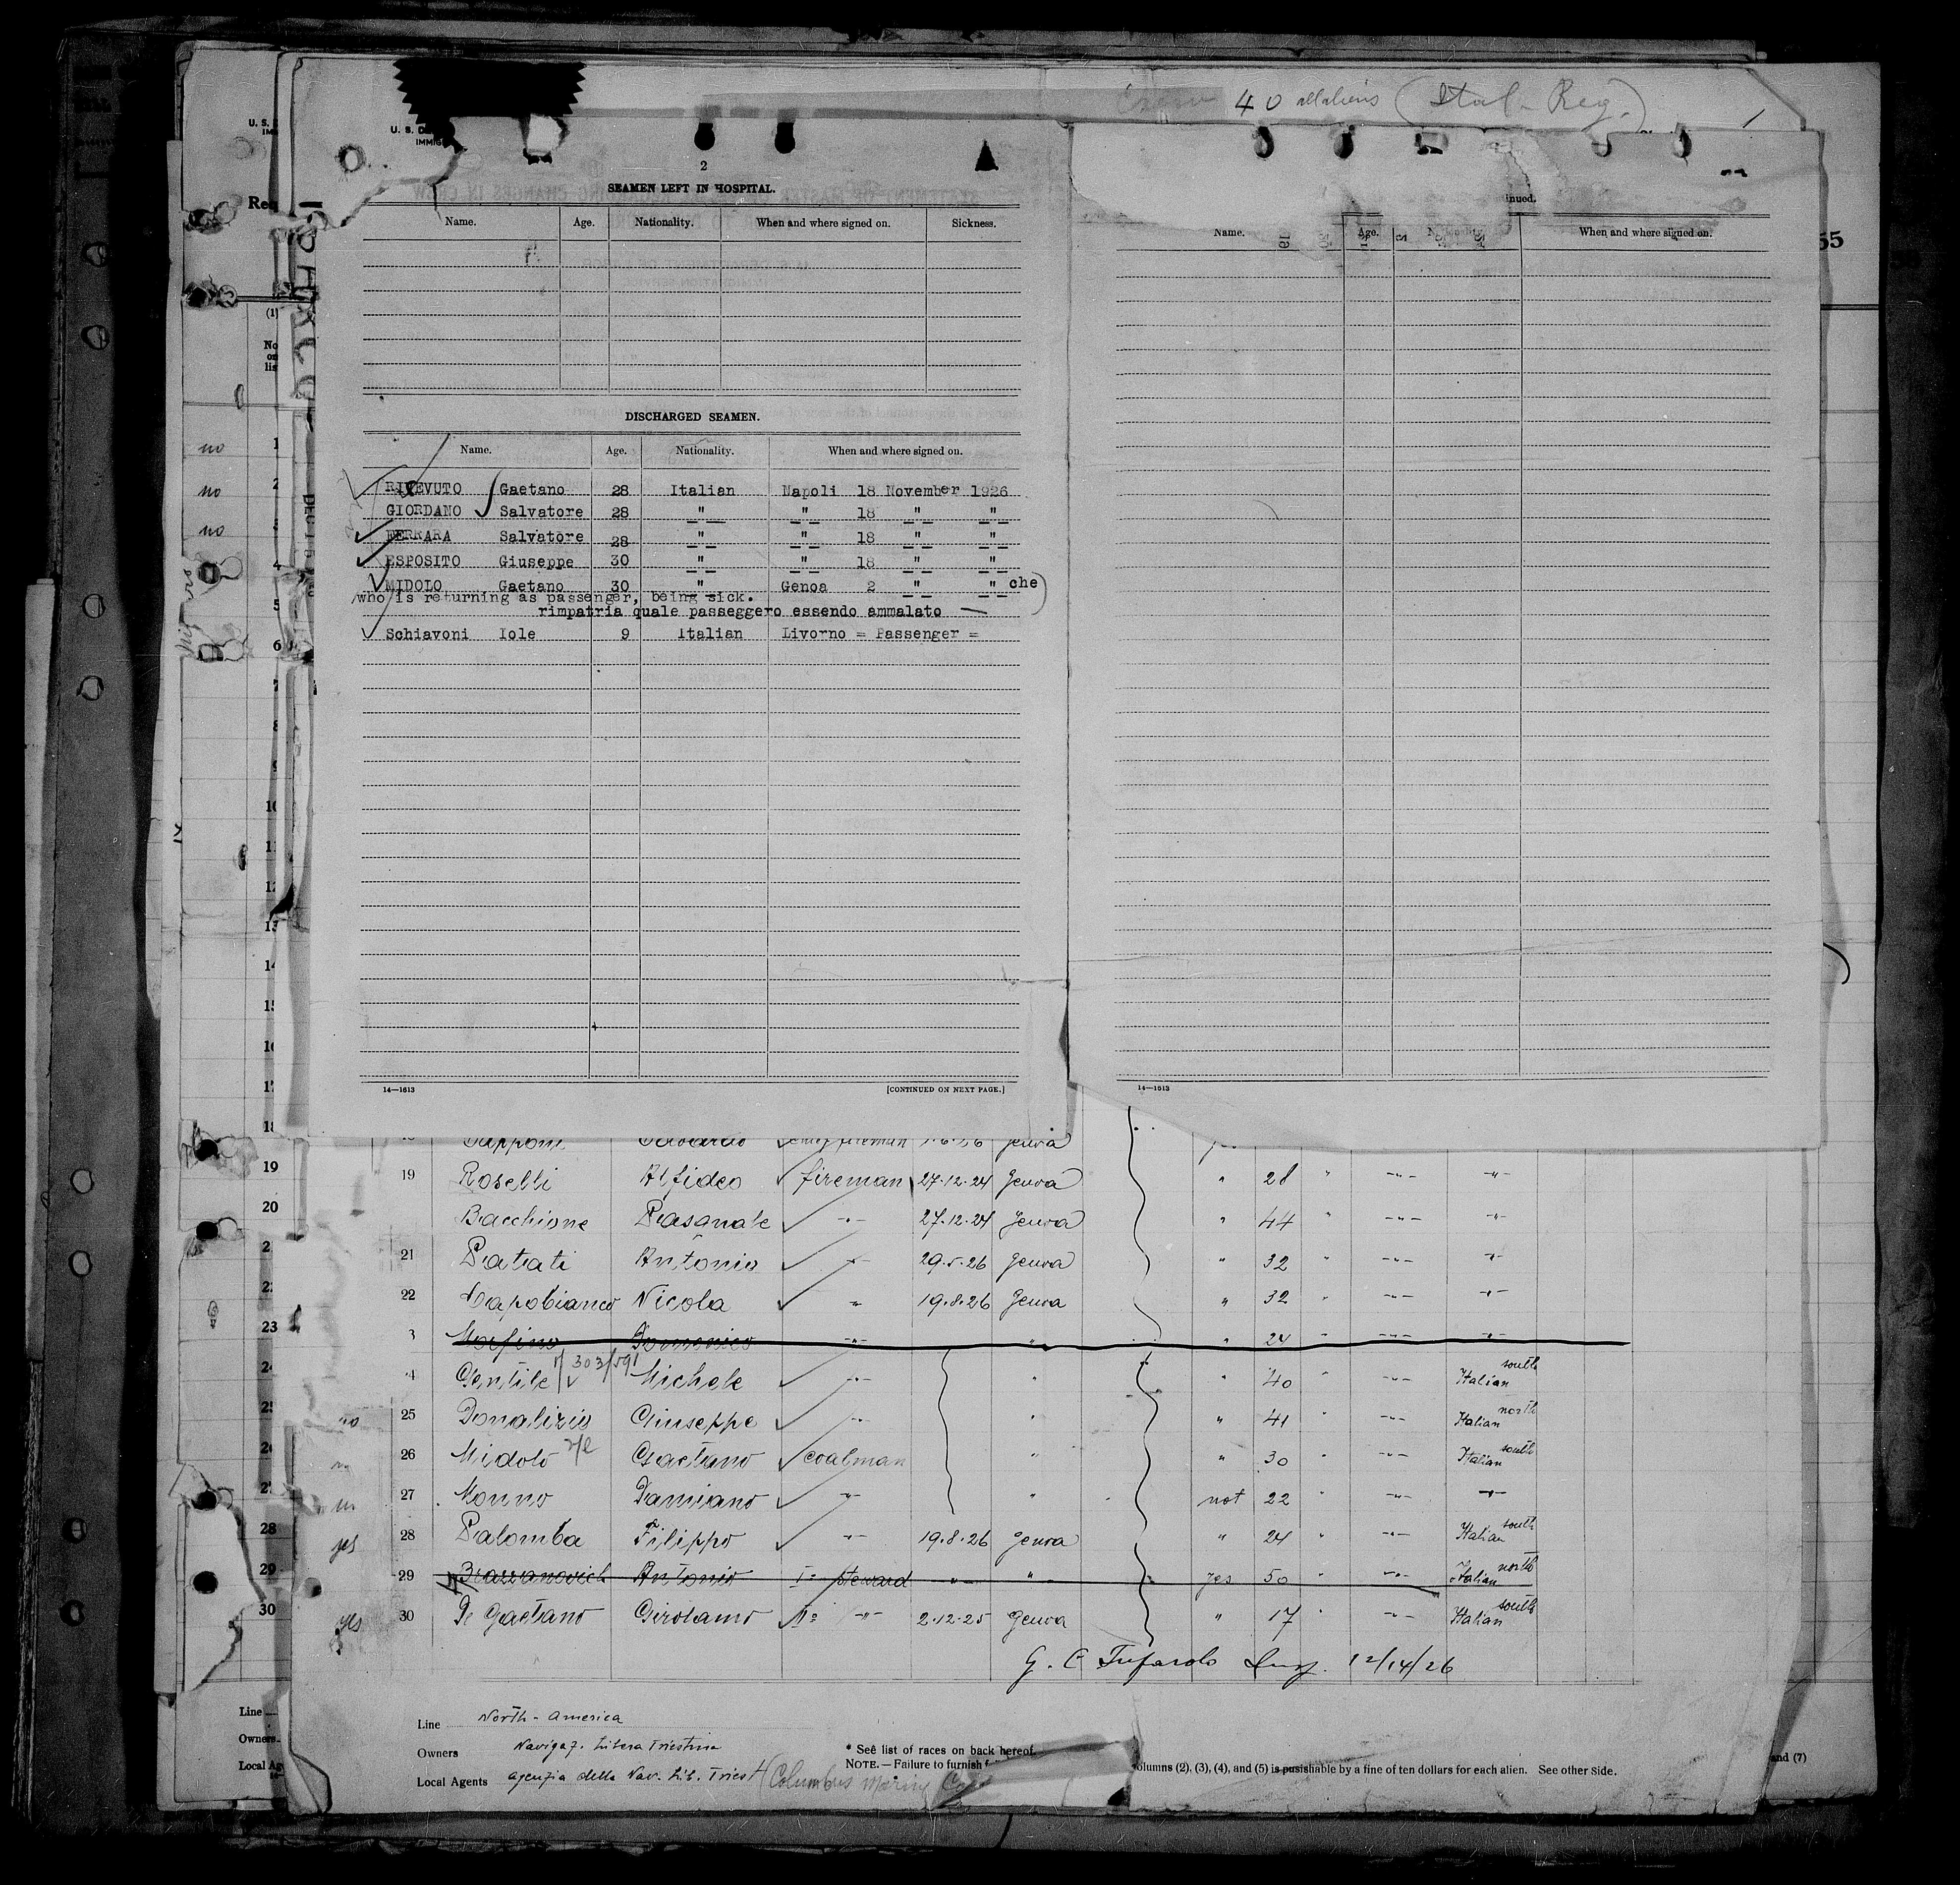 40 allaliens (Ital- Reg.)
U. S.
IMMIG
2
SEAMEN LEFT IN HOSPITAL.
Name. Age. Nationality. When and where signed on. Sickness.
DISCHARGED SEAMEN.
Name. Age. Nationality. When and where signed on.
RICEVUTO Gaetano 28 Italian Napoli 18 November 1926
GIORDANO Salvatore 28 " " 18 " "
FERRARA Salvatore 28 " " 18 " "
ESPOSITO Giuseppe 30 " " 18 " "
MIDOLO Gaetano 30 " Genoa 2 " " che
who is returning as passenger, being sick.
rimpatria quale passeggero essendo ammalato —
Schiavoni Iole 9 Italian Livorno = Passenger =
14—1613 [CONTINUED ON NEXT PAGE.]
inued.
Name. Age. Nationality. When and where signed on.
14—1613
55
19 Roselli Alfideo fireman 27.12.24 Genova " 28 " -"- -"-
Bacchione -"- 27.12.24 Genova " 44 " -"- -"-
21 Patati Antonio -"- 29.5.26 Genova " 32 " -"- -"-
22 Capobianco Nicola " 19.8.26 Genova " 32 " -"- -"-
3 Morfino Domenico -"- " " 24 " -"- -"-
4 Gentile 303/591 Michele -"- " " 40 " -"- Italian south
25 Donalizio Giuseppe -"- " " 41 " -"- Italian north
26 Midolo Gaetano coalman " " 30 " -"- Italian south
27 Monno Damiano -"- " not 22 " -"- -"-
28 Palomba Filippo -"- 19.8.26 Genova " 24 " -"- Italian south
29 Brazzanovich Antonio I° steward -"- " yes 50 " -"- Italian north
30 De Gaetano Girolamo II° -"- 2.12.25 Genova " 17 " -"- Italian south
12/14/26
Line North-America
Owners Navigaz. Libera Triestina
Local Agents Agenzia della Nav. Lib. Triest (Columbus Marine
* See list of races on back hereof.
NOTE.—Failure to furnish
olumns (2), (3), (4), and (5) is punishable by a fine of ten dollars for each alien. See other side.
and (7)